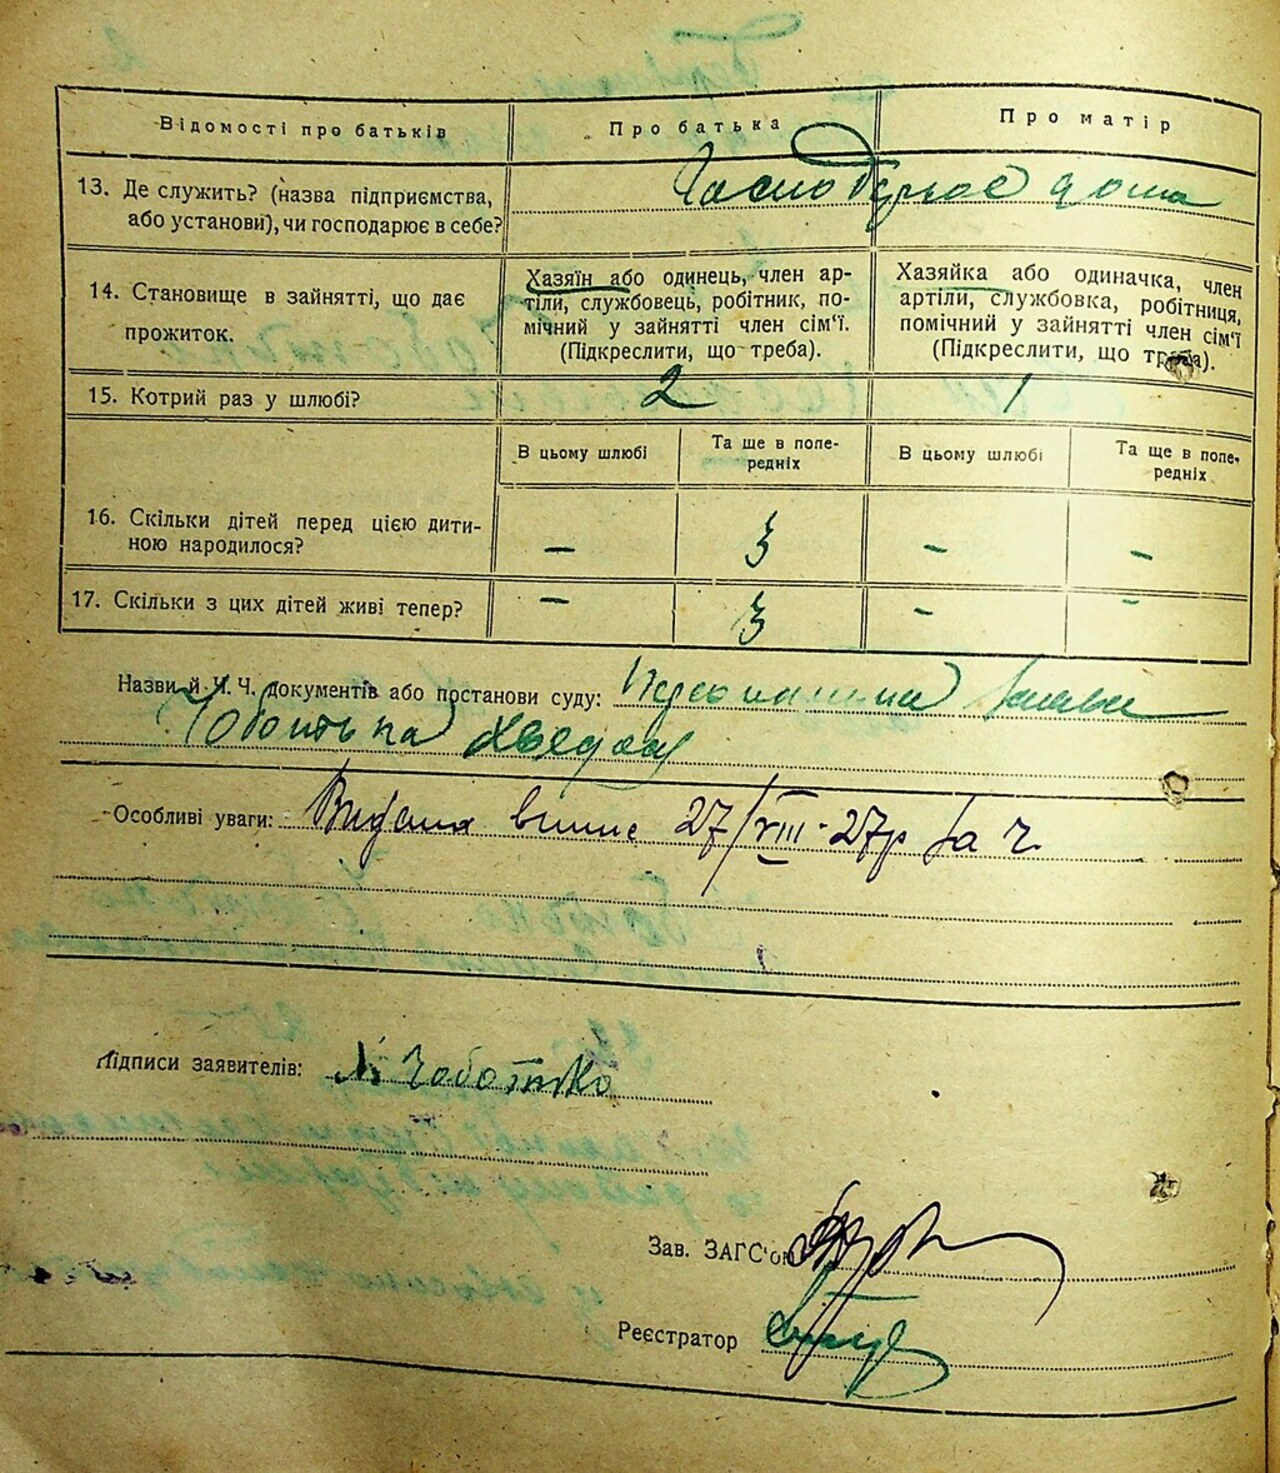 Відомості про батьків
Про батька
Про матір
13. Де служить? (назва підприємства,
або установи), чи господарює в себе?
дома
14. Становище в зайнятті, що дає
прожиток.
Хазяїн або одинець, член ар-
тіли, службовець, робітник, по-
мічний у зайнятті член сім'ї.
(Підкреслити, що треба).
Хазяйка або одиначка, член
артіли, службовка, робітниця,
помічний у зайнятті член сім'ї
(Підкреслити, що треба).
15. Котрий раз у шлюбі?
2
1
В цьому шлюбі
Та ще в попе-
редніх
В цьому шлюбі
Та ще в попе-
редніх
16. Скільки дітей перед цією дити-
ною народилося?
– 3 – –
17. Скільки з цих дітей живі тепер?
– 3 – –
Назви й Ч. Ч. документів або постанови суду: Персональна заява
Чоботька
Особливі уваги: Видана 27/VIII-27р за ч.
Підписи заявителів: Чоботько
Зав. ЗАГС'ом
Реєстратор